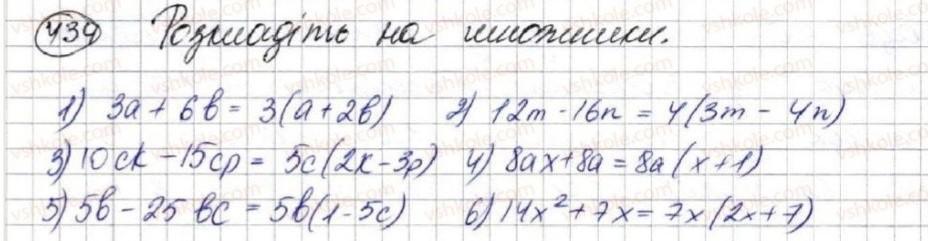 434 Розкладіть на множники.
1) 3a + 6b = 3(a + 2b) 2) 12m - 16n = 4(3m - 4n)
3) 10ck - 15cp = 5c(2k - 3p) 4) 8ax + 8a = 8a(x + 1)
5) 5b - 25bc = 5b(1 - 5c) 6) 14x² + 7x = 7x(2x + 7)